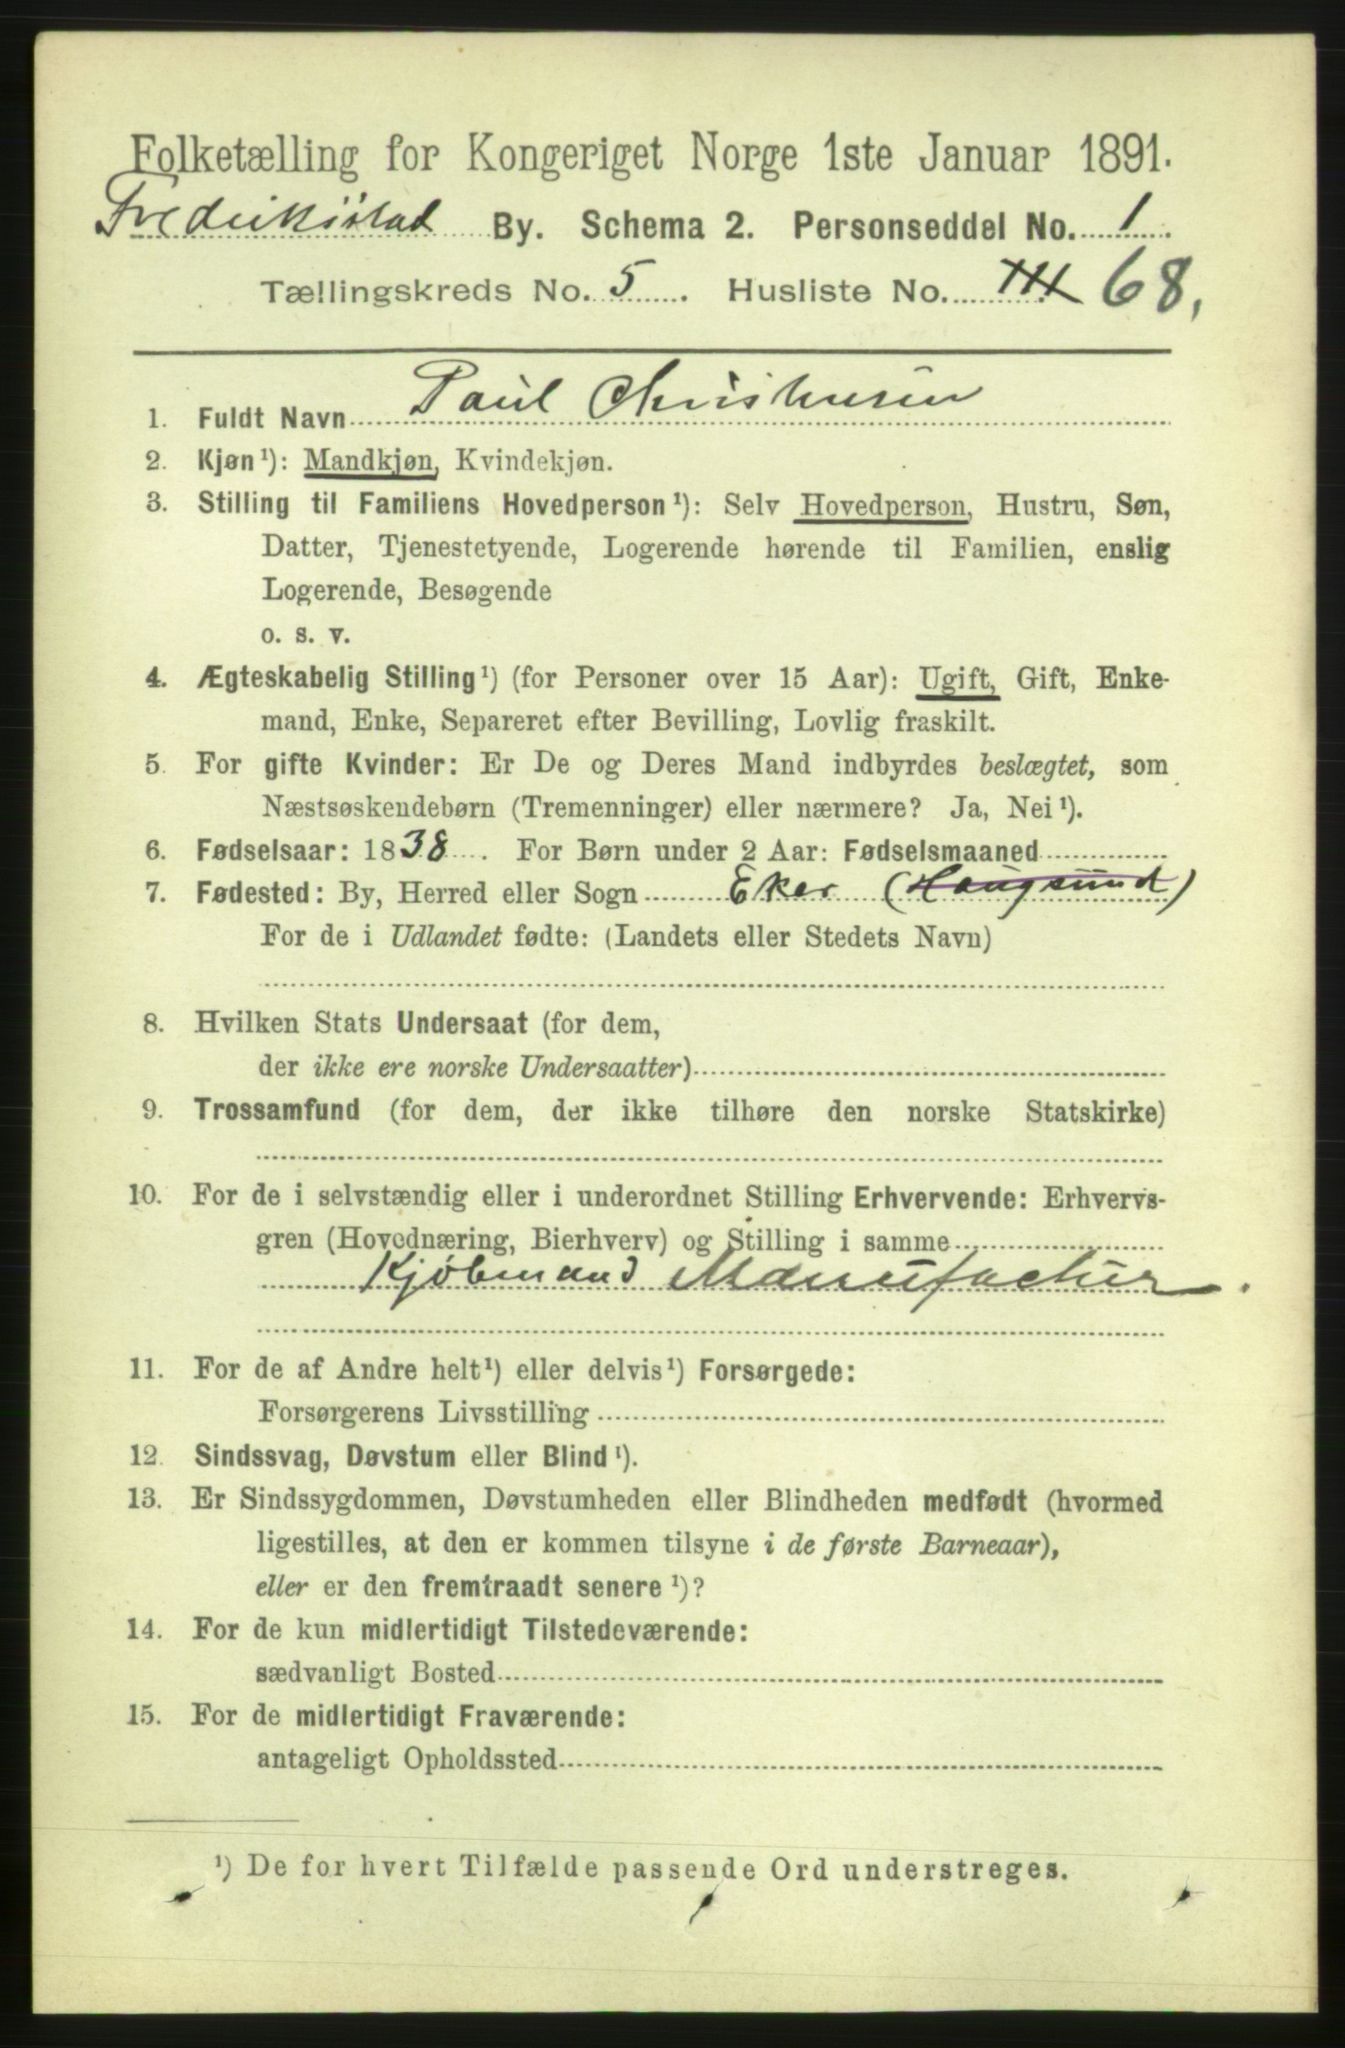 Folketælling for Kongeriget Norge 1ste Januar 1891.
Fredrikstad By. Schema 2. Personseddel No. 1.
Tællingskreds No. 5. Husliste No. 68,
1. Fuldt Navn Paul Christensen
2. Kjøn¹): Mandkjøn, Kvindekjøn.
3. Stilling til Familiens Hovedperson¹): Selv Hovedperson, Hustru, Søn,
Datter, Tjenestetyende, Logerende hørende til Familien, enslig
Logerende, Besøgende
o. s. v.
4. Ægteskabelig Stilling¹) (for Personer over 15 Aar): Ugift, Gift, Enke-
mand, Enke, Separeret efter Bevilling, Lovlig fraskilt.
5. For gifte Kvinder: Er De og Deres Mand indbyrdes beslægtet, som
Næstsøskendebørn (Tremenninger) eller nærmere? Ja, Nei¹).
6. Fødselsaar: 1838. For Børn under 2 Aar: Fødselsmaaned
7. Fødested: By, Herred eller Sogn Eker (Hougsund)
For de i Udlandet fødte: (Landets eller Stedets Navn)
8. Hvilken Stats Undersaat (for dem,
der ikke ere norske Undersaatter)
9. Trossamfund (for dem, der ikke tilhøre den norske Statskirke)
10. For de i selvstændig eller i underordnet Stilling Erhvervende: Erhvervs-
gren (Hovednæring, Bierhverv) og Stilling i samme
Kjøbmand Manufactur.
11. For de af Andre helt¹) eller delvis¹) Forsørgede:
Forsørgerens Livsstilling
12. Sindssvag, Døvstum eller Blind¹).
13. Er Sindssygdommen, Døvstumheden eller Blindheden medfødt (hvormed
ligestilles, at den er kommen tilsyne i de første Barneaar),
eller er den fremtraadt senere¹)?
14. For de kun midlertidigt Tilstedeværende:
sædvanligt Bosted
15. For de midlertidigt Fraværende:
antageligt Opholdssted
¹) De for hvert Tilfælde passende Ord understreges.